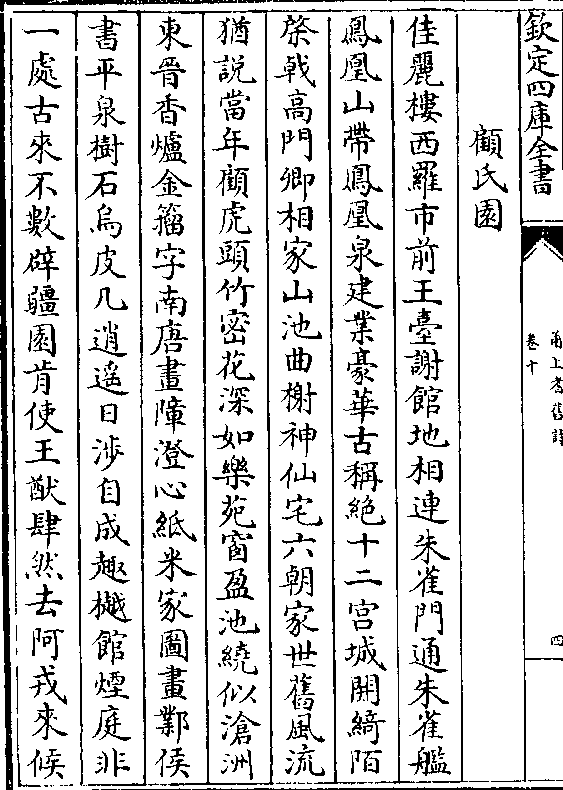 欽定四庫全書
甬上耆舊詩
卷十
四
顧氏園
佳麗樓西羅市前王臺謝館地相連朱雀門通朱雀艦
鳳凰山帶鳳凰泉建業豪華古稱絶十二宫城開綺陌
棨㦸高門卿相家山池曲榭神仙宅六朝家世舊風流
猶説當年顧虎頭竹密花深如樂苑窗盈池繞似滄洲
東晉香爐金籀字南唐畫障澄心紙米家圖畫鄴侯
書平泉樹石烏皮几逍遥日渉自成趣樾館煙庭非
一處古來不數辟疆園肯使王猷肆然去阿戎來候